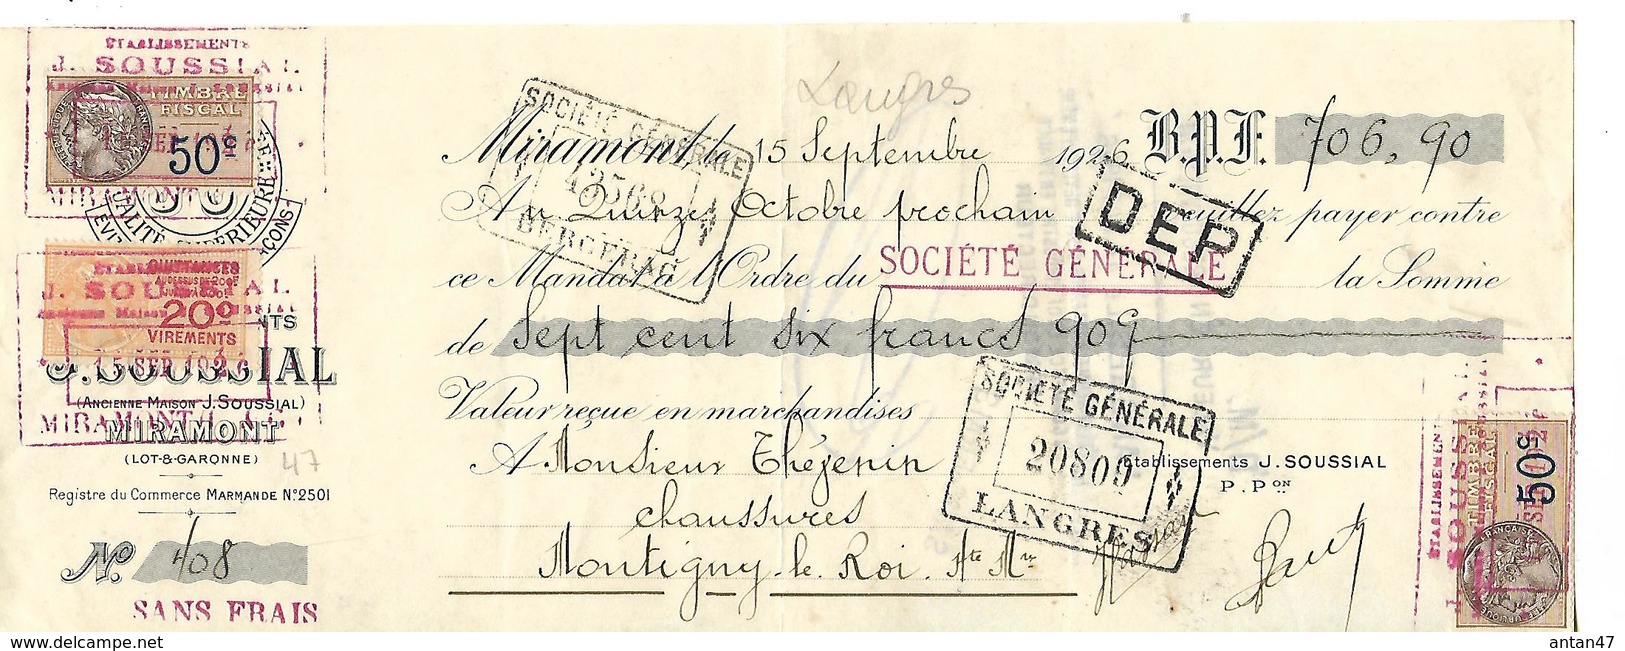 ETABLISSEMENTS
J. SOUSSIAL
TIMBRE
FISCAL
50c
MIRAMONT
QUALITÉ SUPÉRIEURE
QUITTANCES
20c
VIREMENTS
15 SEP 192
J. SOUSSIAL
(ANCIENNE MAISON J. SOUSSIAL)
MIRAMONT
(LOT-&-GARONNE)
47
Registre du Commerce MARMANDE N° 2501
N° 408
SANS FRAIS
Langres
SOCIÉTÉ GÉNÉRALE
42568
BERGERAC
Miramont, le 15 Septembre 1926 B.P.F. 706,90
Au Quinze Octobre prochain veuillez payer contre
DEP
ce Mandat à l'Ordre du SOCIÉTÉ GÉNÉRALE la Somme
de Sept cent six francs 90c
Valeur reçue en marchandises
SOCIÉTÉ GÉNÉRALE
20809
LANGRES
A Monsieur Thézenin
Etablissements J. SOUSSIAL
P. PON
chaussures
Montigny-le-Roi. Hte Mne
ETABLISSEMENTS
J. SOUSSIAL
TIMBRE
FISCAL
50c
delcampe.net
antan47